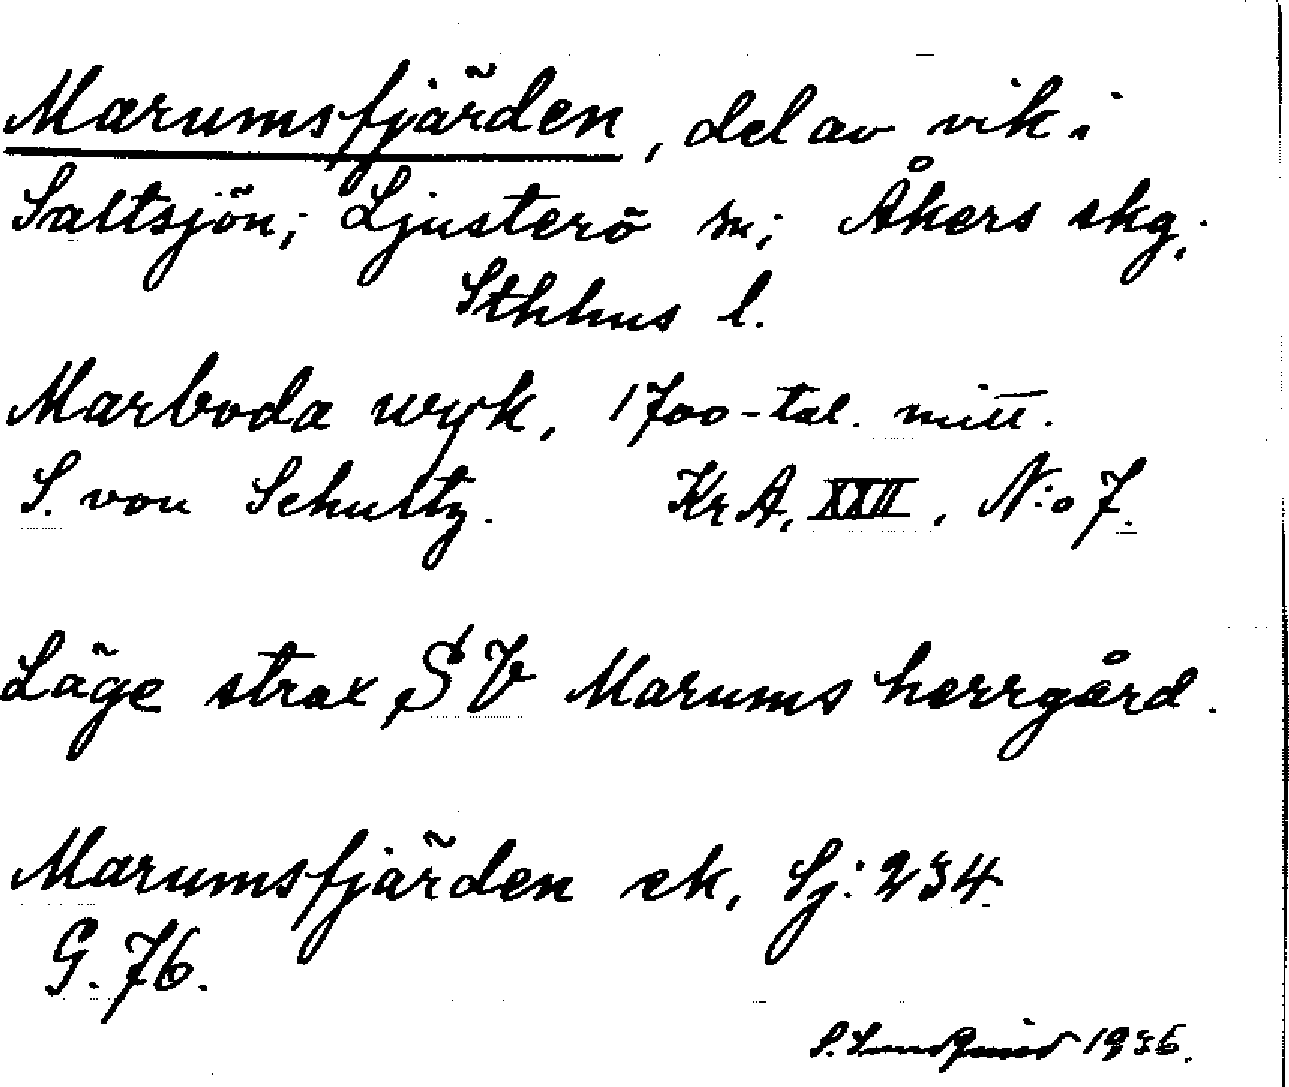 Marumsfjärden, del av vik i
Saltsjön; Ljusterö sn; Åkers skg;
Sthlms l.
Marboda wyk, 1700-tal. mitt.
S. von Schultz. KrA, XXII, N:o 7.
Läge strax SV Marums herrgård.
Marumsfjärden ek, Sj: 234
G. 76.
S. Lundquist 1936.